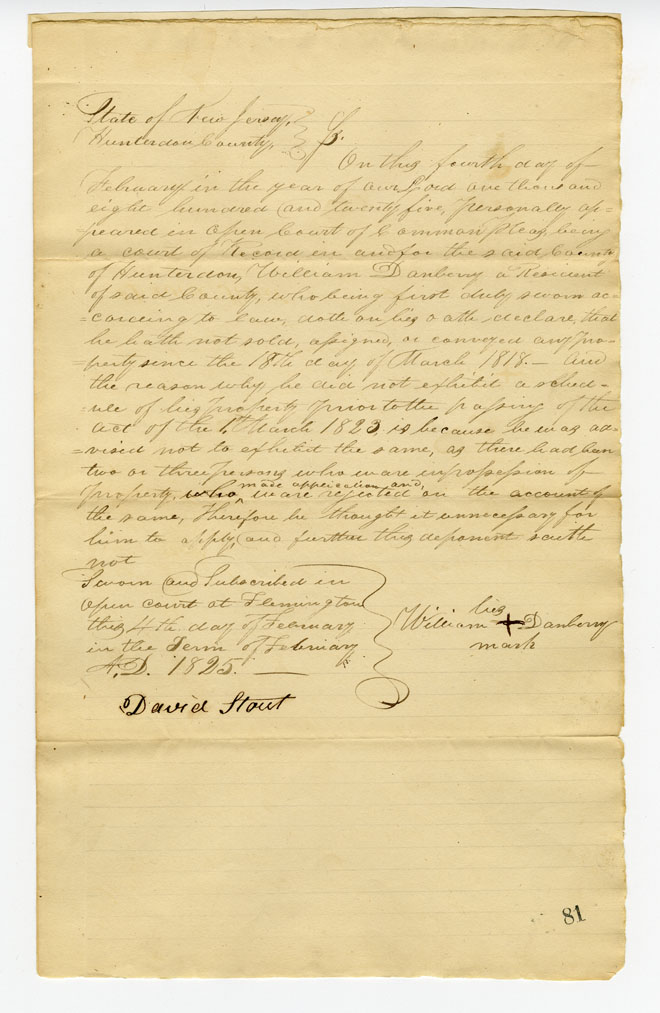 State of New Jersey,
Hunterdon County, } S.
On this fourth day of
February in the year of our Lord one thousand
eight hundred and twenty five, personally ap=
=peared in open Court of Common pleas, being
a court of Record in and for the said County
of Hunterdon, William Danberry a Resident
of said County, who being first duly sworn ac=
=cording to law, doth on his oath, declare, that
he hath not sold, assigned, or conveyed any Pro=
=perty since the 18th day of March 1818. — and
the reason why he did not exhibit a sched=
=ule of his Property prior to the passing of the
act of the 1st March 1823 is because he was ad=
=vised not to exhibit the same, as there had been
two or three Persons who ware in possession of
made application and,
Property, who ware rejected on the account of
the same, Therefore he thought it unnecessary for
him to apply, and further this deponent saith
not
Sworn and Subscribed in
open court at Flemington
this 4th day of February
in the Term of February
A.D. 1825. —
his
William + Danberry
mark
David Stout
81